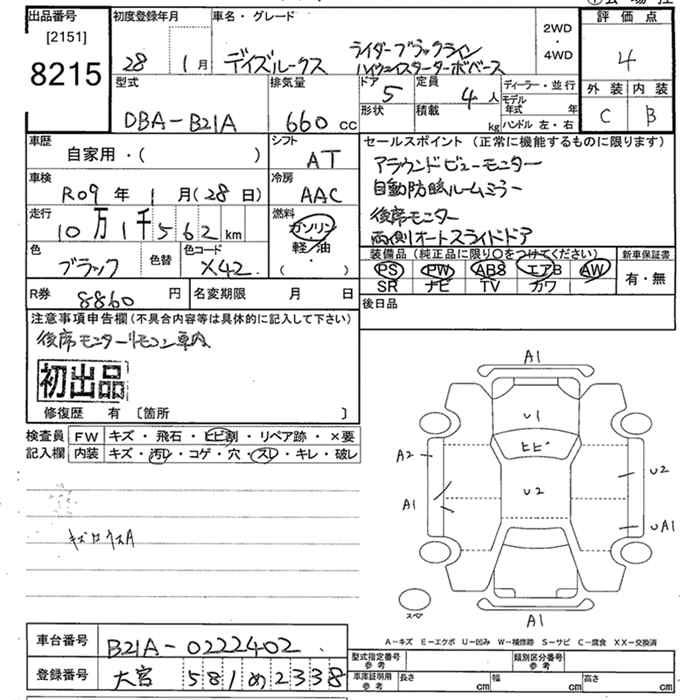 出品番号
[2151]
8215
初度登録年月
28 1月
車名・グレード
デイズルークス
ライダーブラックライン
ハイウェイスターターボベース
2WD
・
4WD
評価点
4
外装 内装
C B
型式
DBA-B21A
排気量
660 cc
ドア
5
形状
定員
4人
積載
kg
ディーラー・並行
モデル
年式 年
ハンドル 左・右
車歴
自家用・( )
シフト
AT
車検
R09年 1月(28日)
冷房
AAC
走行
10万1千562 km
燃料
ガソリン
軽・油
・( )
色
ブラック
色替
色コード
X42
R券
8860円
名変期限 月 日
セールスポイント(正常に機能するものに限ります)
アラウンドビューモニター
自動防眩ルームミラー
後席モニター
両側オートスライドドア
装備品(純正品に限り○をつけてください)
PS PW ABS エアB AW
SR ナビ TV カワ
新車保証書
有・無
後日品
注意事項申告欄(不具合内容等は具体的に記入して下さい)
後席モニターリモコン車内
初出品
修復歴 有 [箇所 ]
検査員
記入欄
FW キズ・飛石・ヒビ割・リペア跡・×要
内装 キズ・汚レ・コゲ・穴・スレ・キレ・破レ
A1
U1
ヒビ
A2
U2
U2
A1
UA1
A1
スペア
A-キズ E-エクボ U-凹み W-補修跡 S-サビ C-腐食 XX-交換済
車台番号
B21A-0222402
登録番号
大宮 581 め 2338
型式指定番号
参考
類別区分番号
参考
車庫証明用
参考
長さ cm
幅 cm
高さ cm